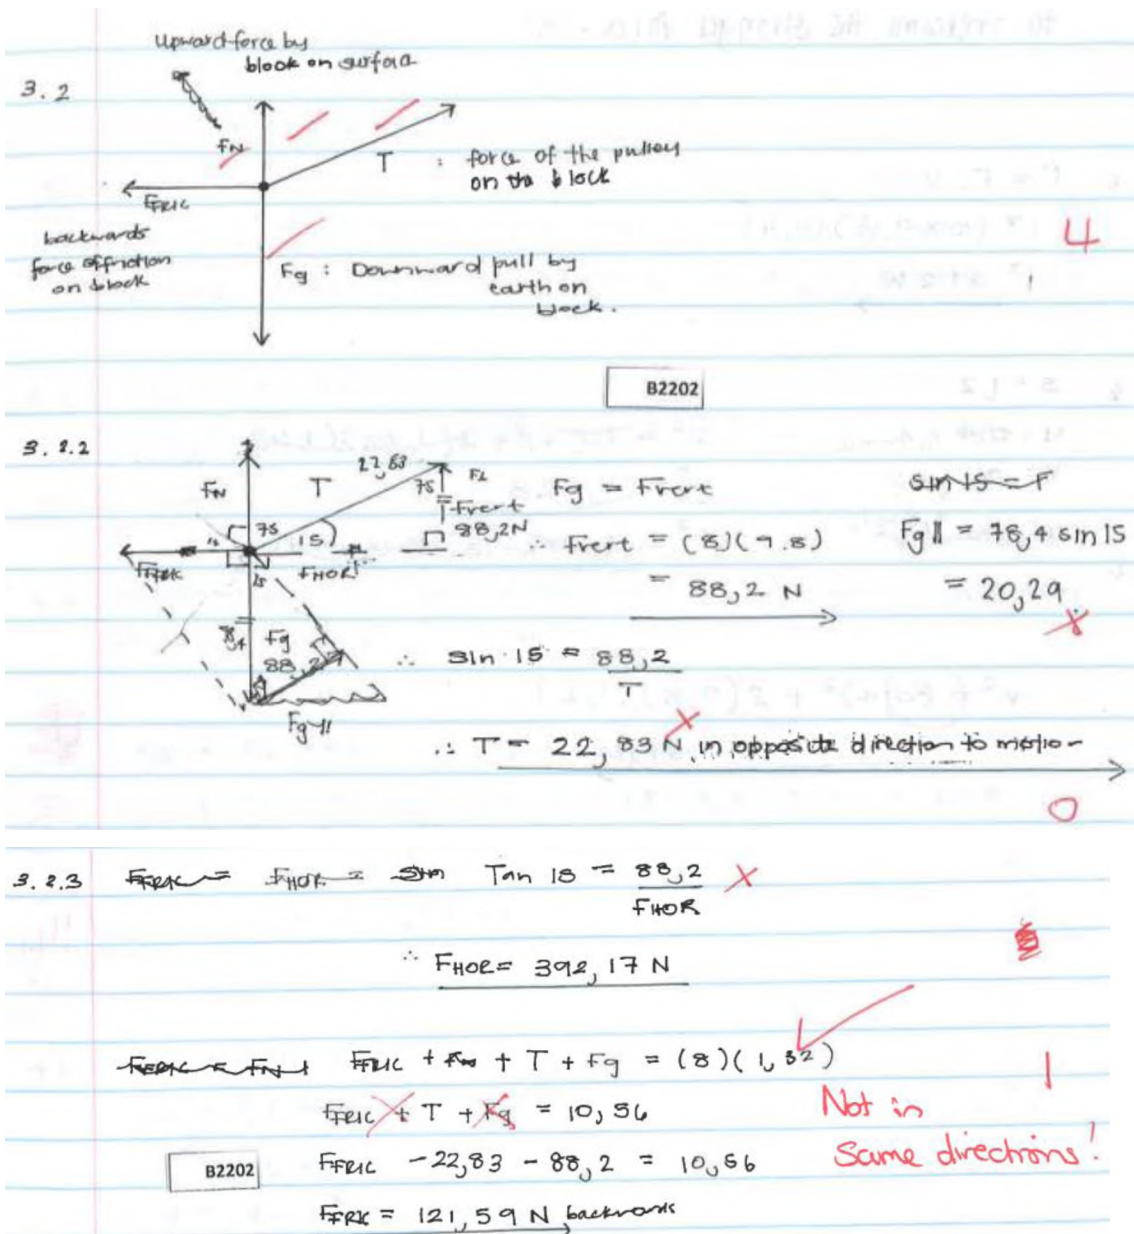 3.2
Upward force by
block on surface
FN
T : force of the pulley
on the block
FFRIC
backwards
force of friction
on block
Fg : Downward pull by
earth on
block.
4
B2202
3.2.2
FN T 22,83
75 F⊥
Fvert
88,2N
75 15
FFRIC FHOR
15
78,4 Fg
88,2
Fg∥
Fg = Fvert
∴ Fvert = (8)(9.8)
= 88,2 N
sin 15 = F
Fg∥ = 78,4 sin 15
= 20,29
∴ sin 15 = 88,2
T
∴ T = 22,83 N in opposite direction to motion
0
3.2.3 FFRIC = FHOR = Sin Tan 15 = 88,2
FHOR
∴ FHOR = 392,17 N
FFRIC = FN FFRIC + FN + T + Fg = (8)(1,32)
1
FFRIC + T + Fg = 10,56
Not in
same directions!
B2202
FFRIC -22,83 - 88,2 = 10,56
FFRIC = 121,59 N backwards